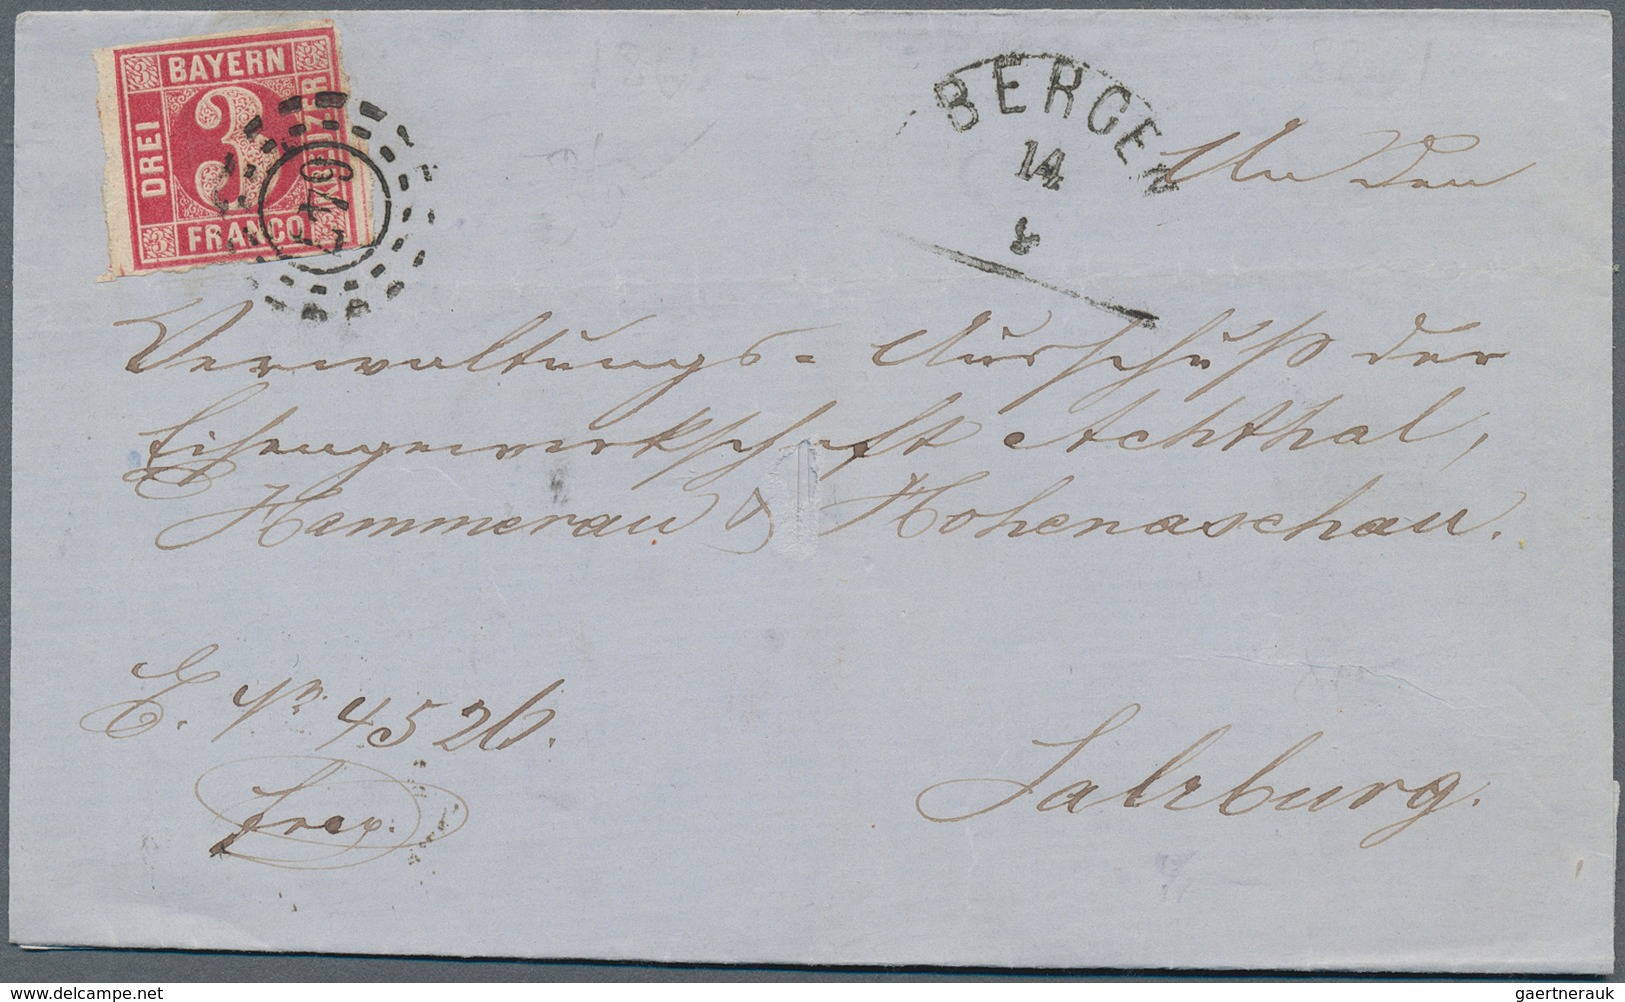 BAYERN
DREI
3
KREUZER
FRANCO
647
BERGEN
14
8
An den
Verwaltungs=Ausschuß der
Eisengewerkschaft Achthal,
Hammerau & Hohenaschau.
E. No 4526.
Salzburg.
© www.delcampe.net
gaertnerauk